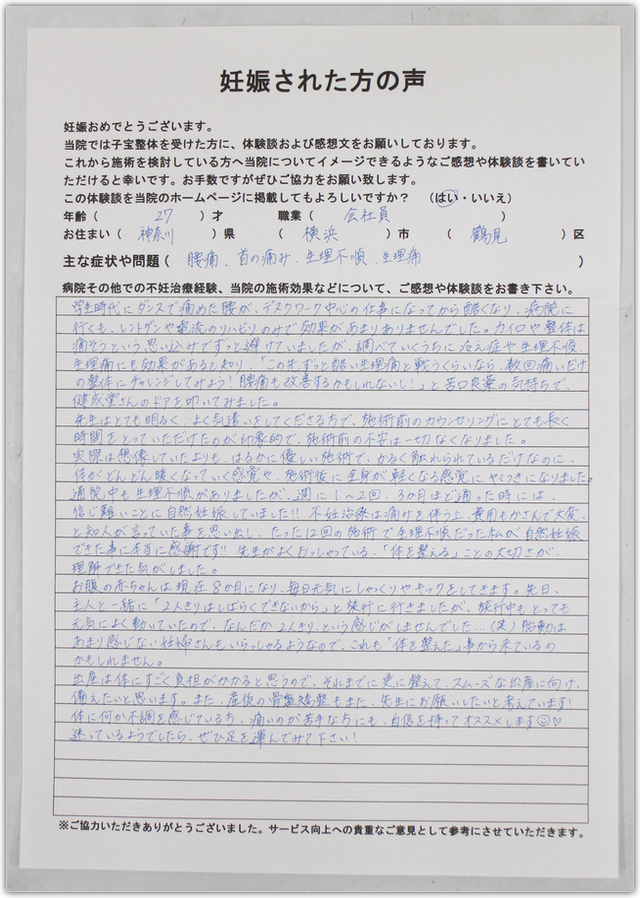 妊娠された方の声
妊娠おめでとうございます。
当院では子宝整体を受けた方に、体験談および感想文をお願いしております。
これから施術を検討している方へ当院についてイメージできるようなご感想や体験談を書いてい
ただけると幸いです。お手数ですがぜひご協力をお願い致します。
この体験談を当院のホームページに掲載してもよろしいですか？　（はい・いいえ）
年齢（　27　）才　職業（　会社員　）
お住まい（　神奈川　）県　（　横浜　）市　（　鶴見　）区
主な症状や問題（　腰痛、首の痛み、生理不順、生理痛　）
病院その他での不妊治療経験、当院の施術効果などについて、ご感想や体験談をお書き下さい。
学生時代にダンスで痛めた腰が、デスクワーク中心の仕事になってから酷くなり、病院に
行くも、レントゲンや電流のリハビリのみで効果があまりありませんでした。カイロや整体は
痛そうという思い込みでずっと避けていましたが、調べていくうちに冷え症や生理不順、
生理痛にも効果があると知り、「この先ずっと酷い生理痛と戦うくらいなら、数回痛いだけ
の整体にチャレンジしてみよう！腰痛も改善するかもしれないし！」と苦口良薬の気持ちで、
健成堂さんのドアを叩いてみました。
先生はとても明るく、よく気遣いをしてくださる方で、施術前のカウンセリングにとても長く
時間をとっていただけたのが印象的で、施術前の不安は一切なくなりました。
実際は想像していたよりも、はるかに優しい施術で、かるく触れられているだけなのに、
体がどんどん暖くなっていく感覚や、施術後に全身が軽くなる感覚にやみつきになりました。
通院中も生理不順がありましたが、週に1〜2回、3か月ほど通った時には、
信じ難いことに自然妊娠していました!! 不妊治療は痛みを伴う上、費用もかさんで大変、
と知人が言っていた事を思い出し、たった12回の施術で生理不順だった私が自然妊娠
できた事に本当に感謝です!! 先生がよくおっしゃている、「体を整える」ことの大切さが、
理解できた気がしました。
お腹の赤ちゃんは現在8か月になり、毎日元気にしゃっくりやキックをしてきます。先日、
主人と一緒に「2人きりはしばらくできないから」と旅行に行きましたが、旅行中もとっても
元気によく動いていたので、なんだか2人きり、という感じがしませんでした…(笑) 胎動は
あまり感じない妊婦さんもいらっしゃるようなので、これも「体を整えた」事から来ているの
かもしれません。
出産は体にすごく負担がかかると思うので、それまでに更に整えて、スムーズな出産に向け、
備えたいと思います。また、産後の骨盤矯整もまた、先生にお願いしたいと考えています!
体に何か不調を感じている方、痛いのが苦手な方にも、自信を持ってオススメします☺♡
迷っているようでしたら、ぜひ足を運んでみて下さい!
※ご協力いただきありがとうございました。サービス向上への貴重なご意見として参考にさせていただきます。